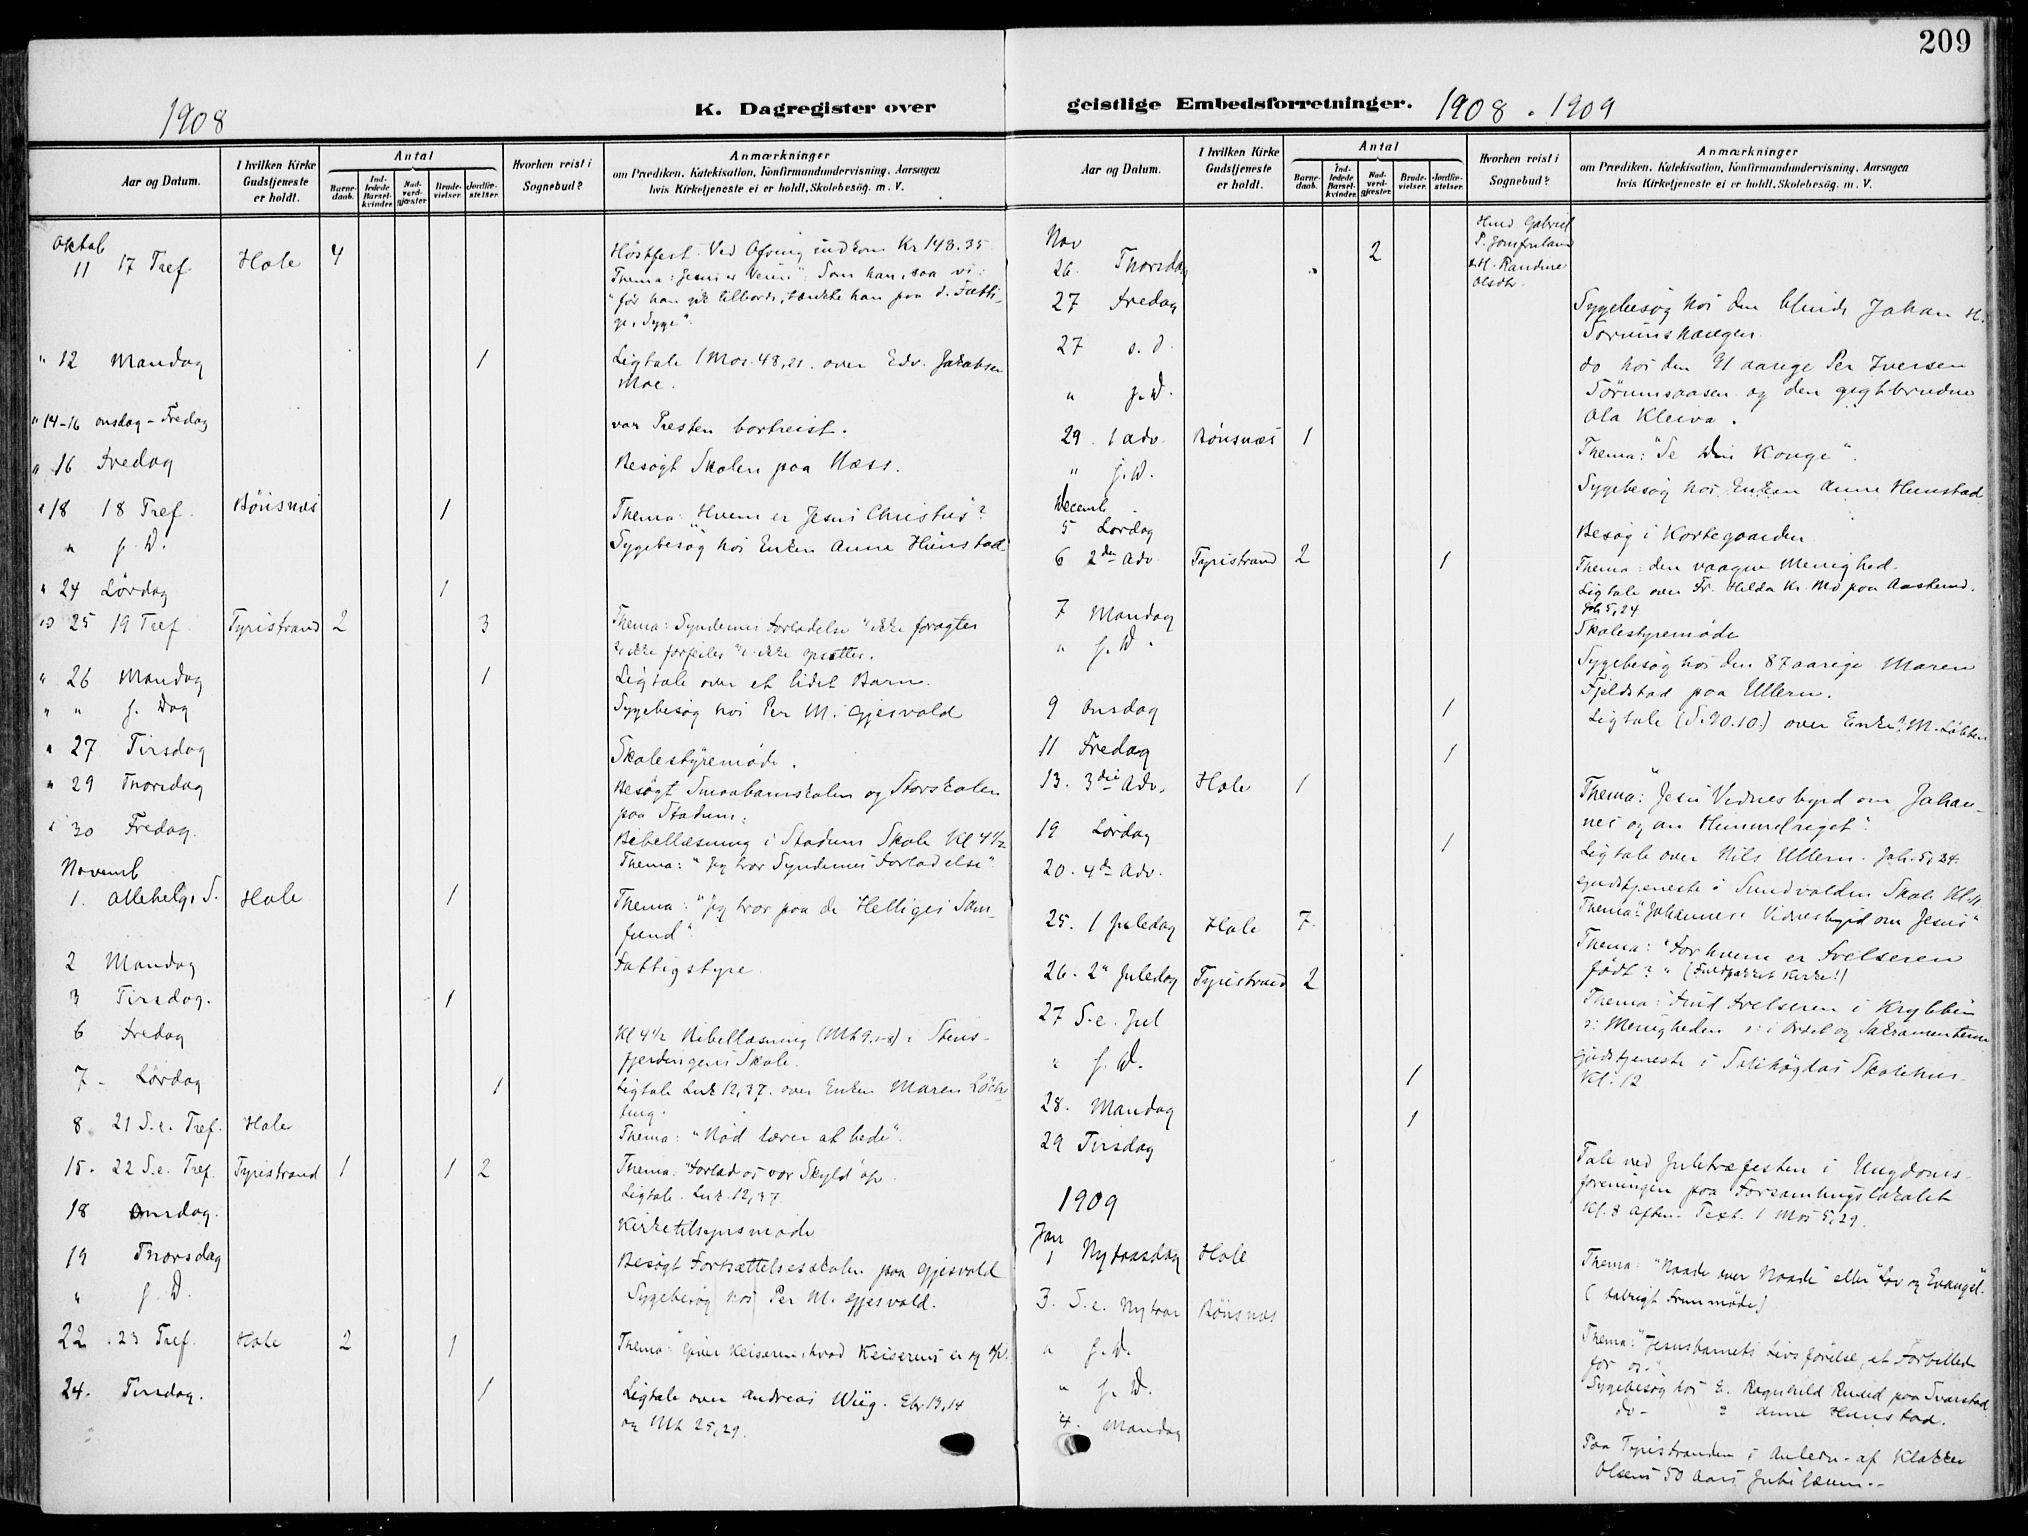 209
1908
K. Dagregister over
geistlige Embedsforretninger.
1908 . 1909
Aar og Datum.
I hvilken Kirke Gudstjeneste er holdt.
Antal
Barnedaab.
Indledede Barselkvinder.
Nadverdgjæster.
Brudevielser.
Jordfæstelser.
Hvorhen reist i Sognebud?
Anmærkninger
om Prædiken, Katekisation, Konfirmandundervisning, Aarsagen
hvis Kirketjeneste ei er holdt, Skolebesøg. m. V.
Oktob
11 17 Tref. Hole 4 Høstfest. Ved Ofring indkom Kr 148.35
Thema: Jesu er Venu". Som han, saa vi:
"før han gik tilbords, tænkte han paa d. Fatti-
ge, Syge".
" 12 Mandag 1 Ligtale 1 Mos. 48,21. over Edv. Jakobsen
Moe.
" 14-16 onsdag - Fredag var Presten bortreist.
" 16 Fredag Besøgt Skolen paa Næss.
" 18 18 Tref. Bönsnæs 1 Thema: Hvem er Jesus Christus?
" s. D. Sygebesøg hos Enken Anne Hunstad
" 24 Lørdag 1
" 25 19 Tref Tyristrand 2 3 Thema: Syndernes Forladelse "ikke foragtes
ikke forspiles ikke opsættes.
" 26 Mandag 1 Ligtale over et lidet Barn.
" " s. Dag Sygebesøg hos Per M. Gjesvold
" 27 Tirsdag Skolestyremøde.
" 29 Thorsdag Besøgt Smaabarnskolen og Storskolen
paa Stadum.
" 30 Fredag. Bibellæsning i Stadum Skole Kl 4 1/2
Thema: "Jeg tror Syndernes Forladelse".
Novemb
1. Allehelg. S. Hole 1 Thema: "Jeg tror paa de Helliges Sam-
fund".
2 Mandag Fattigstyre.
3 Tirsdag. 1
6 Fredag Kl 4 1/2 Bibellæsning (Mt 9.1-8) i Stens-
fjerdingens Skole.
7 - Lørdag 1 Ligtale Luk 12,37. over Enken Maren
8 21 S. e. Tref. Hole Thema: "Nød lærer at bede".
15. 22 S. e. Tref. Tyristrand 1 1 2 Thema: "Forlad os vor Skyld"
Ligtale. Luk. 12,37.
18 Onsdag. Kirketilsynsmøde
19 Thorsdag Besøgt Fortsættelsesskolen paa Gjesvold
" s. D. Sygebesøg hos Per M. Gjesvold.
22 . 23 Tref. Hole 2 1 Thema: "Giver Keiseren, hvad Keiserens er og
24. Tirsdag. 1 Ligtale over Andreas Wiig. Ebr 13,14
og Mt 25,29.
Aar og Datum.
I hvilken Kirke Gudstjeneste er holdt.
Antal
Barnedaab.
Indledede Barselkvinder.
Nadverdgjæster.
Brudevielser.
Jordfæstelser.
Hvorhen reist i Sognebud?
Anmærkninger
om Prædiken, Katekisation, Konfirmandundervisning, Aarsagen
hvis Kirketjeneste ei er holdt, Skolebesøg. m. V.
Nov
26. Thorsdag 2 Husd Gabriel
P. Jomfruland
H. Randine
Olsdtr.
27 Fredag Sygebesøg hos den blinde Johan H.
27 s. d. do hos den 91 aarige Per Iversen
" s. D. Sørumsaasen og den gigtbrudne
Ola Kleiva.
29. 1 Adv. Bönsnæs 1 Thema: "Se Din Konge".
" s. D. Sygebesøg hos Enken Anne Hunstad
Decemb
5 Lørdag Besøg i Kortegaarden
6 2den Adv. Tyristrand 2 1 Thema: den vaagne Menighed.
Ligtale over Fr. Helda Kr. Mo paa Aaslund.
Joh 5,24
7 Mandag Skolestyremøde
" s. D. Sygebesøg hos den 87 aarige Maren
Fjeldstad paa Ullern.
9 Onsdag 1 Ligtale (S. 90.10.) over Enke? M. Løbben
11 Fredag 1
13. 3die Adv. Hole 1 Thema: "Jesu Vidnesbyrd om Johan-
nes og om Himmelriget".
19 Lørdag 1 Ligtale over Nils Ullern. Joh. 5,24.
20. 4de Adv. Gudstjeneste i Sundvolden Skole Kl. 11
Thema: "Johannes's Vidnesbyrd om Jesus"
25. 1 Juledag Hole 7 Thema: "For hvem er Frelseren
født?" (Fuldpakket Kirke!)
26. 2n Juledag Tyristrand 2 Thema: "Find Frelseren i Krybben
ɔ: Menigheden ɔ: i Ordet og Sakramenterne
27 S. e. Jul Gudstjeneste i Solihøgdas Skolehus.
Kl. 12
" s. D. 1
28. Mandag 1
29 Tirsdag Tale ved Juletræfesten i Ungdoms-
foreningen paa Forsamlingslokalet
Kl. 8 Aften. Text. 1 Mos 5,29.
1909
Jan
1 Nytaarsdag Hole Thema: "Naade over Naade" eller "Lov og Evangel".
(talrigt Fremmøde)
3. S. e. Nytaar Bönsnæs Thema: "Jesusbarnets Livsførelse, et Forbillede
for os."
" s. D. Sygebesøg hos E. Ragnhild Ruud paa Svarstad
" s. D. do - Anne Hunstad.
4. Mandag Paa Tyristranden i Anledn. af Klokker
Olsens 50 Aars Jubilæum.-